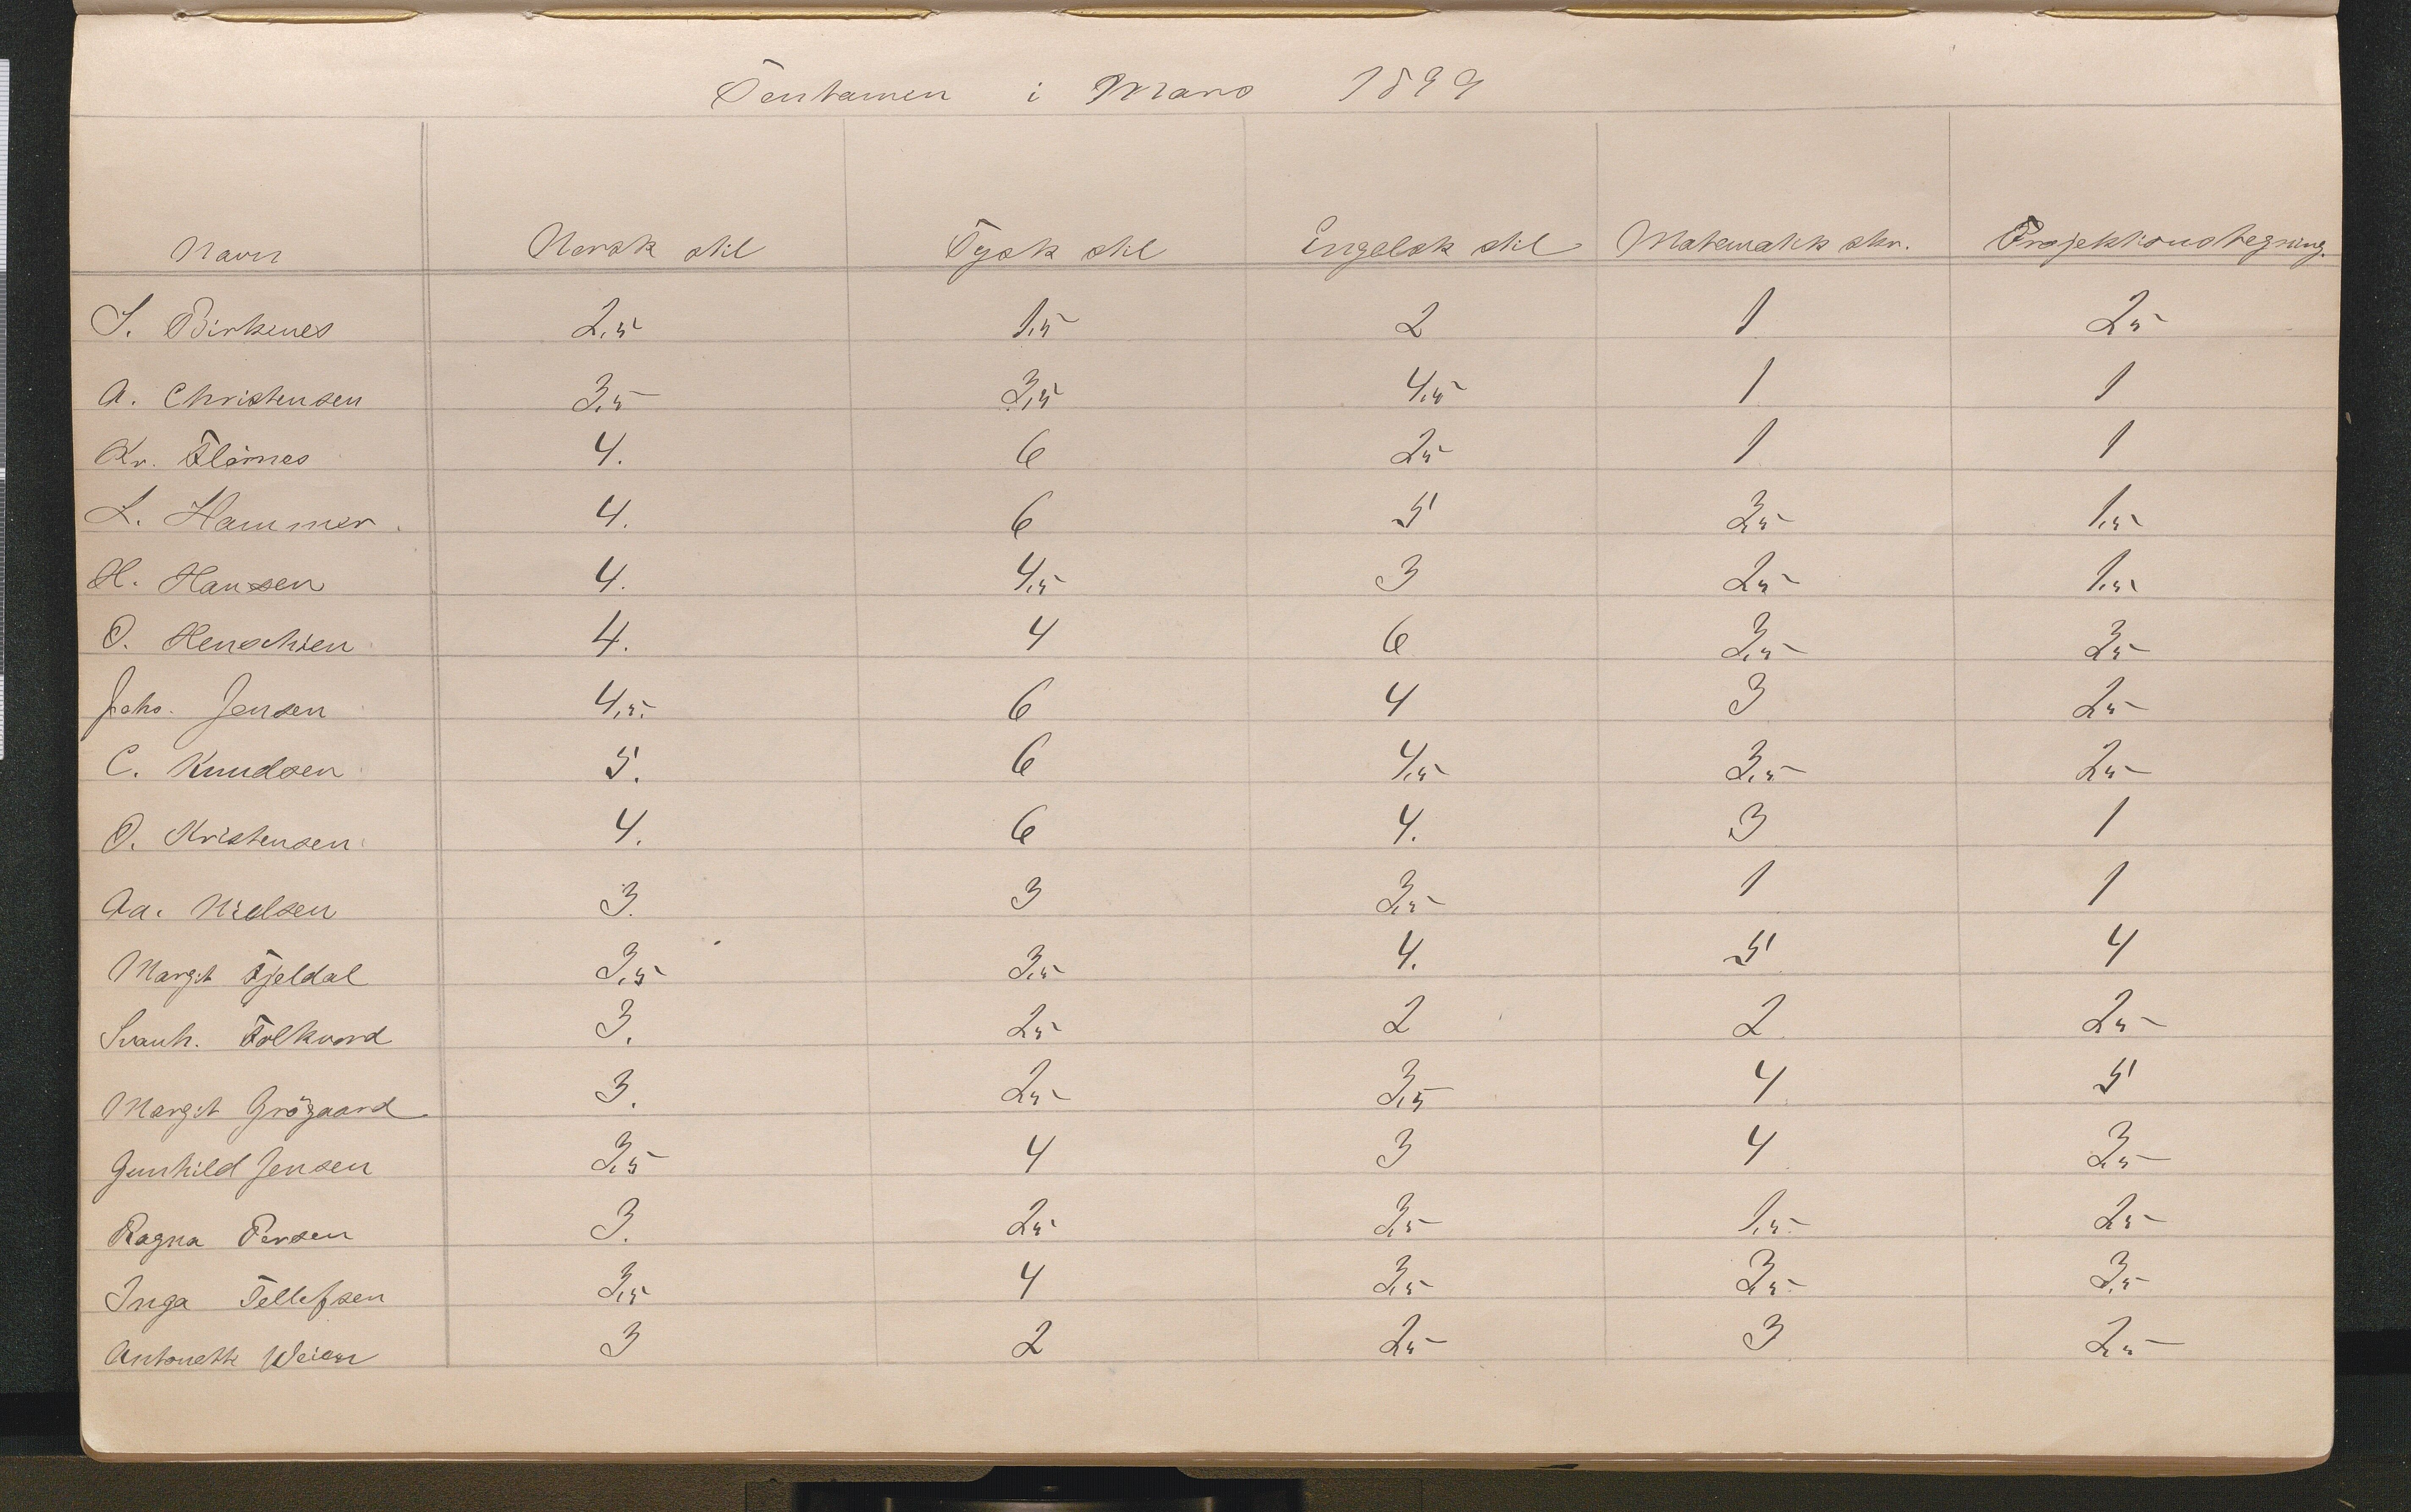 Tentamen i Mars 1899
Navn Norsk stil Tysk stil Engelsk stil Matematik skr. Projektionstegning.
S. Birkenes 2,5 1,5 2 1 2,5
A. Christensen 3,5 3,5 4,5 1 1
Kr. Flørnes 4. 6 2,5 1 1
L. Hammer. 4. 6 5 3,5 1,5
H. Hansen 4. 4,5 3 2,5 1,5
O. Henschien 4. 4 6 3,5 3,5
Johs. Jensen 4,5. 6 4 3 2,5
C. Knudsen 5. 6 4,5 3,5 2,5
O. Kristensen 4. 6 4. 3 1
Aa. Nielsen 3. 3 3,5 1 1
Margit Fjeldal 3,5 3,5 4. 5 4
Svanh. Folkvord 3. 2,5 2 2 2,5
Margit Grögaard 3. 2,5 3,5 4 5
Gunhild Jensen 3,5 4 3 4 3,5
Ragna Persen 3. 2,5 3,5 1,5 2,5
Inga Tellefsen 3,5 4 3,5 3,5 3,5
Antonette Weien 3 2 2,5 3 2,5